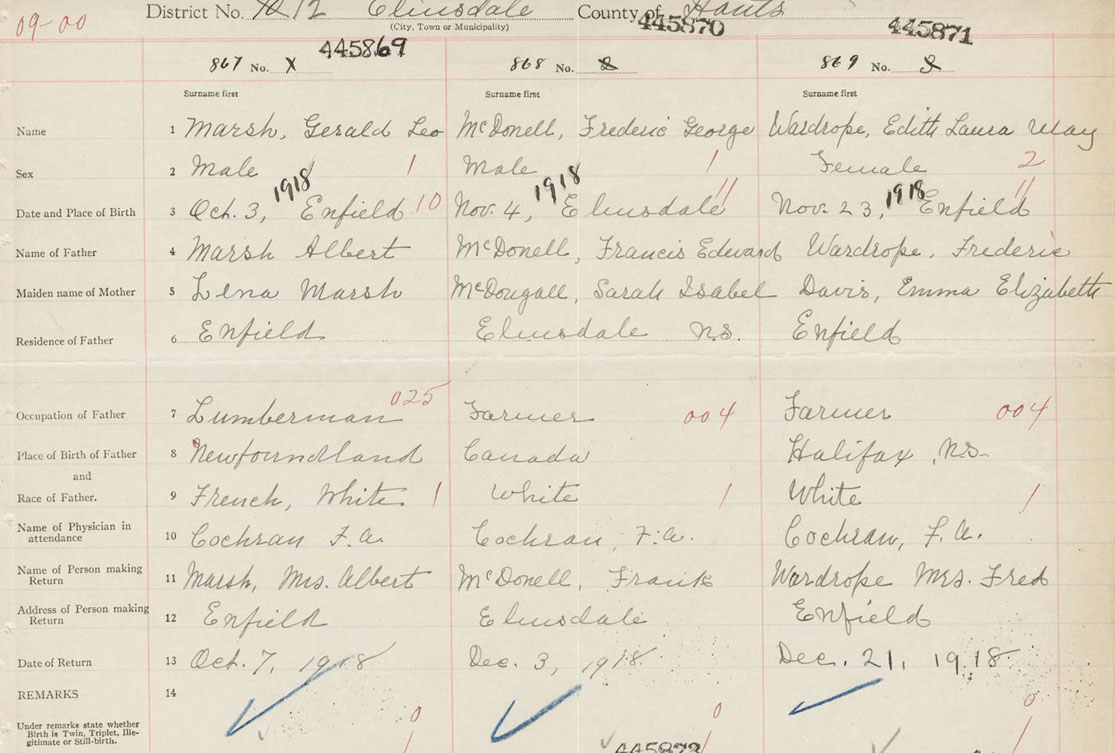 District No. 12 Elmsdale County of Hants
(City, Town or Municipality)
09-00
445869 445870 445871
867 No. X 868 No. 2 869 No. 3
Surname first Surname first Surname first
Name 1 Marsh, Gerald Leo McDonell, Frederic George Wardrope, Edith Laura May
Sex 2 Male 1 Male 1 Female 2
Date and Place of Birth 3 Oct. 3, 1918 Enfield 10 Nov. 4, 1918 Elmsdale 11 Nov. 23, 1918 Enfield 11
Name of Father 4 Marsh Albert McDonell, Francis Edward Wardrope, Frederic
Maiden name of Mother 5 Lena Marsh McDougall, Sarah Isabel Davis, Emma Elizabeth
Residence of Father 6 Enfield Elmsdale N.S. Enfield
Occupation of Father 7 Lumberman 025 Farmer 004 Farmer 004
Place of Birth of Father 8 Newfoundland Canada Halifax, N.S.
and
Race of Father. 9 French, White 1 White 1 White 1
Name of Physician in attendance 10 Cochran F.A. Cochran, F.A. Cochran, F.A.
Name of Person making Return 11 Marsh, Mrs. Albert McDonell, Frank Wardrope Mrs. Fred
Address of Person making Return 12 Enfield Elmsdale Enfield
Date of Return 13 Oct. 7, 1918 Dec. 3, 1918 Dec. 21, 1918
REMARKS 14
Under remarks state whether
Birth is Twin, Triplet, Ille-
gitimate or Still-birth.
0 0 0
1 1 1
445873